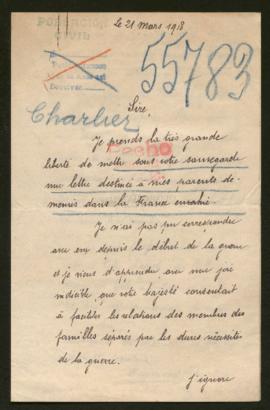 POBLACION
CIVIL
Le 21 Mars 1918
55783
Charlier
Sire,
Je prends la très grande
Hecho
liberté de mettre sous votre sauvegarde
une lettre destinée à mes parents de-
meurés dans la France envahie.
Je n'ai pas pu correspondre
avec eux depuis le début de la guerre
et je viens d'apprendre avec une joie
indicible que votre Majesté consentait
à faciliter les relations des membres des
familles séparés par les dures nécessités
de la guerre.
J'ignore